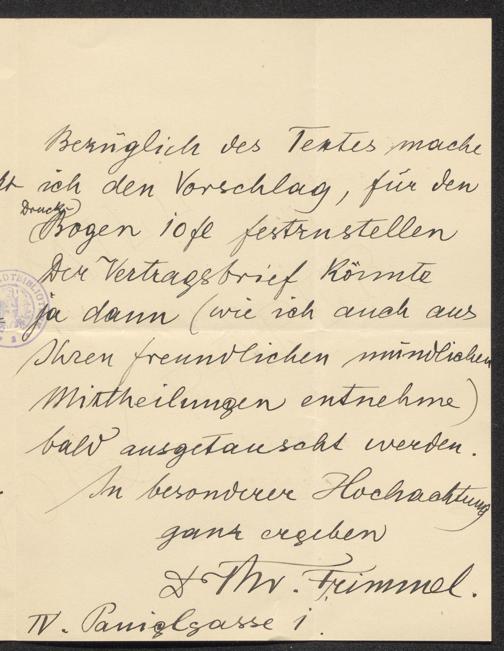 Bezüglich des Textes mache
ich den Vorschlag, für den
Druck-
Bogen 10 fl festzustellen
Der Vertragsbrief könnte
ja dann (wie ich auch aus
Ihren freundlichen mündlichen
Mittheilungen entnehme)
bald ausgetauscht werden.
In besonderer Hochachtung
ganz ergeben
Dr Th v. Frimmel.
IV. Paniglgasse 1.